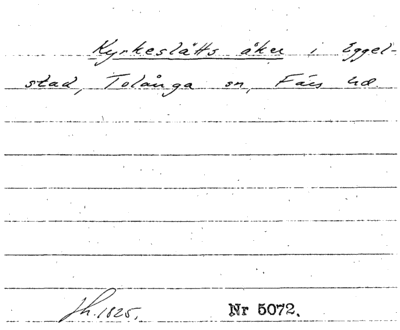 Kyrkeslätts åker i Eggel-
stad, Tolånga sn, Färs hd
Jh. 1825. Nr 5072.